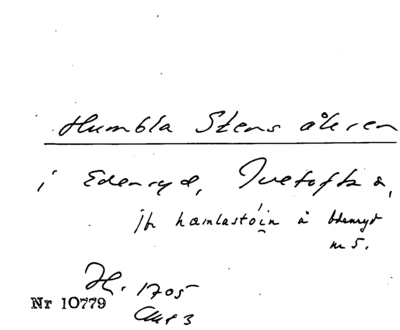 Humbla Stens åkren
i Edenryd, Ivetofta s,
jfr hæmlastóin å Edenryd
nr 5.
H. 1705
Akt 3
Nr 10779